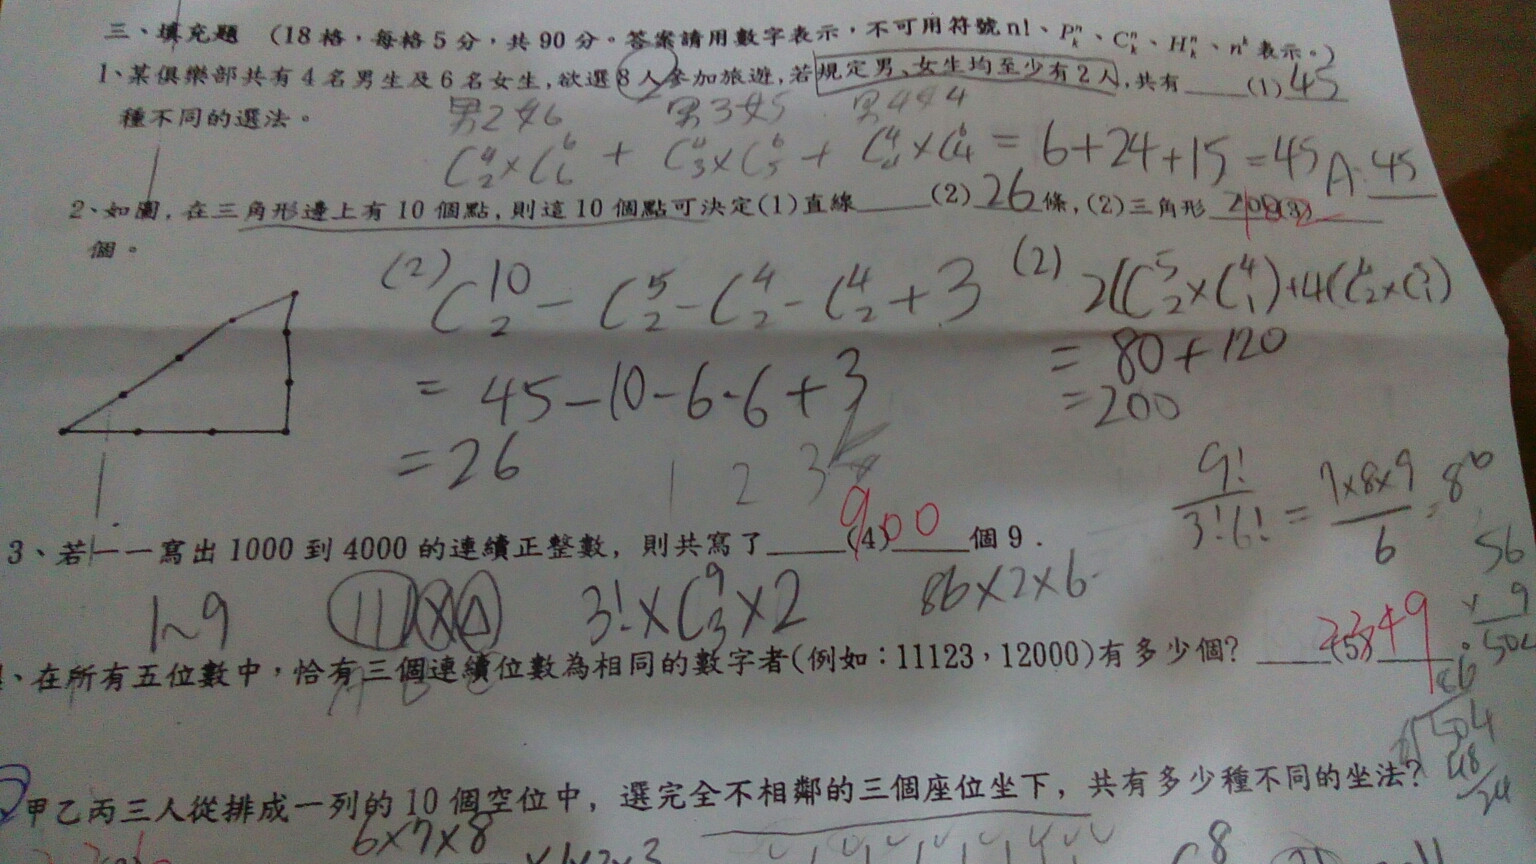 三、填充題 (18格,每格5分,共90分。答案請用數字表示,不可用符號n!、Pₖⁿ、Cₖⁿ、Hₖⁿ、nᵏ表示。)
1、某俱樂部共有4名男生及6名女生,欲選8人參加旅遊,若規定男、女生均至少有2人,共有____(1)45
男2女6 男3女5 男4女4
種不同的選法。
C⁴₂×C⁶₆ + C⁴₃×C⁶₅ + C⁴₄×C⁶₄ = 6+24+15 = 45 A: 45
2、如圖,在三角形邊上有10個點,則這10個點可決定(1)直線____(2)26條,(2)三角形____(3)____
個。
(2) C¹⁰₂ - C⁵₂ - C⁴₂ - C⁴₂ + 3
= 45-10-6-6+3
= 26
(2) 2(C⁵₂×C⁴₁)+4(
= 80+120
= 200
1 2 3
9!/3!6! = 7×8×9/6 =
3、若一一寫出1000到4000的連續正整數,則共寫了____(4)900個9.
1~9 3!×C⁹₃×2 86×2×6
56
× 9
504
、在所有五位數中,恰有三個連續位數為相同的數字者(例如:11123,12000)有多少個? ____(5)____。
86
504
48
24
甲乙丙三人從排成一列的10個空位中,選完全不相鄰的三個座位坐下,共有多少種不同的坐法?
6×7×8